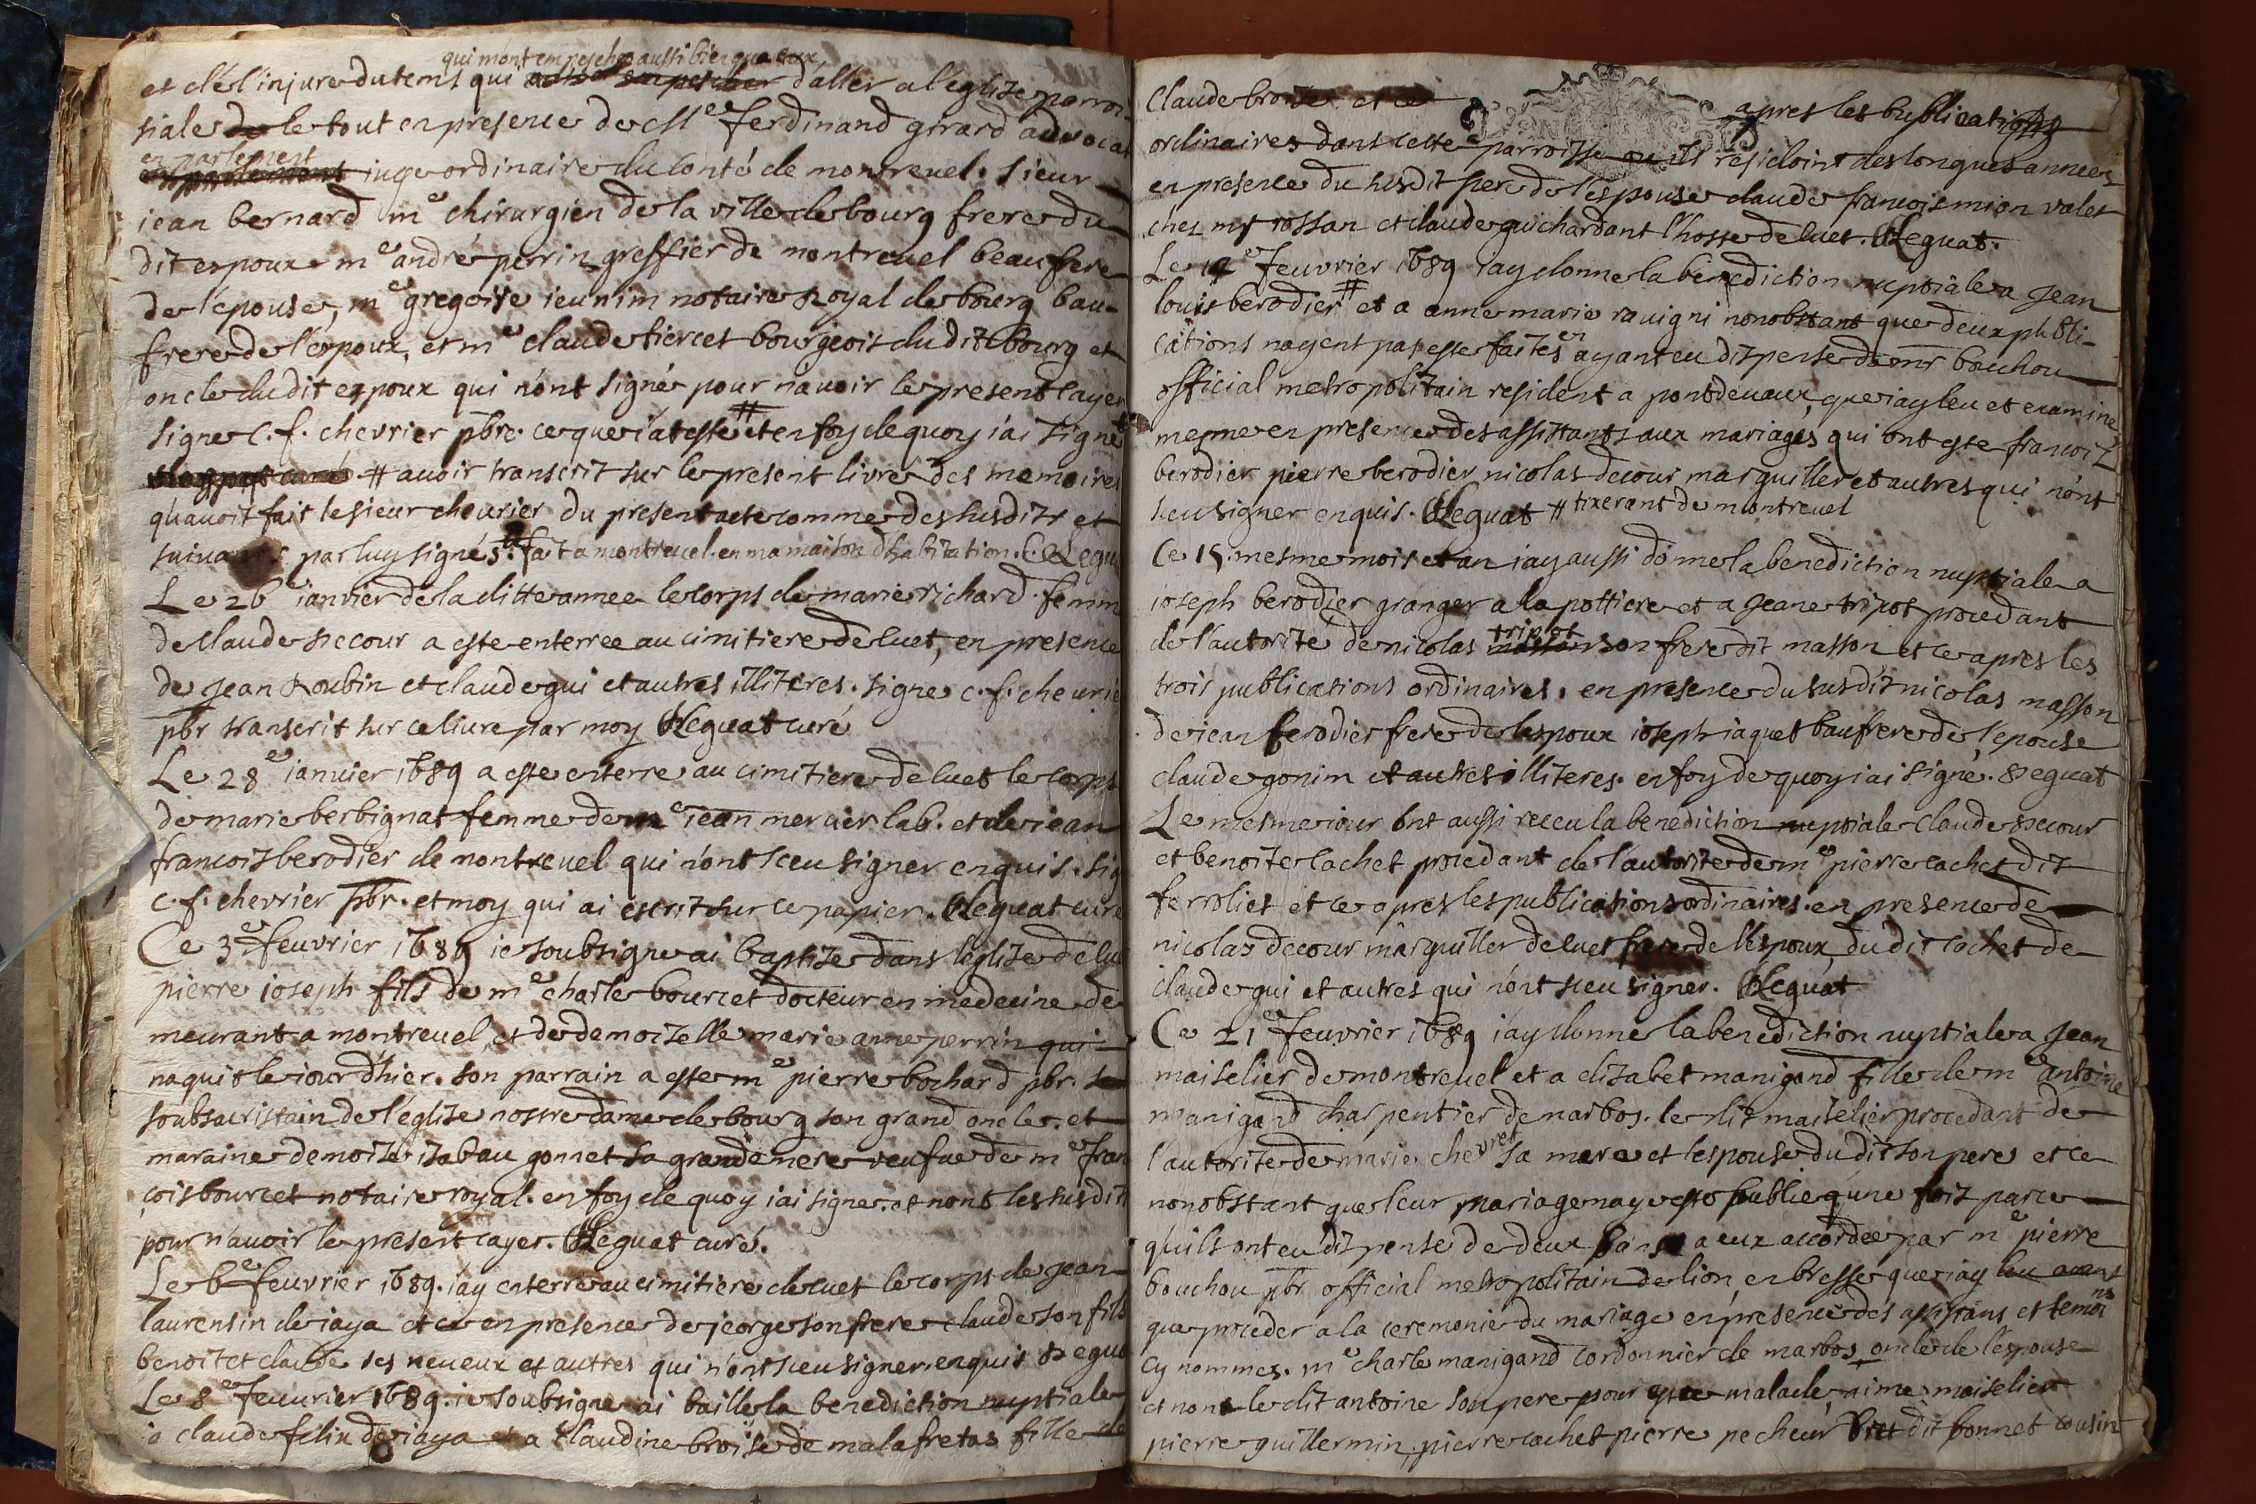 qui mont empeschez aussi bien que eux
et de l'injure du tems qui d'aller a l'eglise parroi-
siale le tout en presence de Mre ferdinand girard advocat
en parlement
iuge ordinaire du conté de montrevel. sieur
iean bernard me chirurgien de la ville de bourg frere du
dit espoux me andré perrin greffier de montrevel beaufrere
de l'épouse, me gregoire ieunim notaire Royal de bourg bau-
frere de l'espoux, et me claude tiercet bourgeois du dit bourg et
oncle du dit espoux qui n'ont signé pour n'avoir le present cayer
signe C. f. chevrier pbre. ce que i'ateste # et en foy de quoy i'ai signé
# avoir transcrit sur le present livre des memoires
qu'avoit fait le sieur chevrier du present acte comme des susdits et
par luy signés. fait a montrevel en ma maison d'habitation.
Le 26e ianvier de la ditte annee le corps de marie richard femm
de claude decour a este enterree au cimitiere de luet, en presence
de Jean Roubin et claude gui et autres illiteres. signe c. f. chevrie
pbr transcrit sur ce livre par moy Reguat curé
Le 28e ianvier 1689 a este enterre au cimitiere de luet le corps
de marie berbignat femme de me iean mercier lab. et de iean
francois berodier de montrevel qui n'ont sceu signer enquis. sig
c. f. chevrier pbr. et moy qui ai escrit sur ce papier. Reguat curé
Ce 3e feuvrier 1689 ie soubsigne ai baptise dans l'eglise de lu
pierre ioseph fils de me charle bourcet docteur en medecine de
meurant a montrevel et de demoiselle marie anne perrin qui
naquit le iour d'hier. son parrain a este me pierre bochard pbr.
soubsacristain de l'église nostre dame de bourg son grand oncle. et
maraine demoise isabau gonnet sa grande mere veufve de me fran
çois bourcet notaire royal. en foy de quoy i'ai signe. et nont les susdit
pour n'avoir le présent cayer. Reguat curé.
Le 6e feuvrier 1689. i'ay enterre au cimitiere de luet le corps de Jean
laurensin de iaya et ce en presence de jeorge son frere claude son fils
benoit et claude ses neveux et autres qui n'ont sceu signer enquis Regua
Le 8e feuvrier 1689. ie soubsigne ai baille la benediction nuptiale
a claude felix de iaya et a claudine broise de malafretas fille de
Claude broise. et ce apres les publications
ordinaires dans cette parroisse ou ils residoint des longues annees
en presence du susdit pere de l'espouse claude francois mion valet
chez mr rossan et claude guichardant l'hoste de luet. Reguat.
Le 12e feuvrier 1689 i'ay donne la bénediction nuptiale a Jean
louis berodier # et a anne marie ravigni nonobstant que deux publi-
cations nayent pas este faites en ayant eu dispense de mr bouchou
official metropolitain resident a pontdevaux, que i'ay leu et examiné
mesme en presence des assistants aux mariages qui ont este francois
berodier pierre berodier nicolas decour marguiller et autres qui n'ont
sceu signer enquis. Reguat # tixerant de montrevel
Ce 15. mesme mois et an i'ay aussi donne la benediction nuptiale a
ioseph berodier granger a la pottiere et a Jeane tripot procedant
de l'autorité de nicolas tripot son frere dit masson et ce apres les
trois publications ordinaires. en presence du susdit nicolas masson
de iean berodier frere de l'espoux ioseph iaquet baufrere de l'epouse
claude gonin et autres illiteres. en foy de quoy i'ai signé. Reguat
Le mesme iour ont aussi receu la benediction nuptiale claude decour
et benoite cachet procedant de l'autorite de me pierre cachet dit
ferroliet et ce apres les publications ordinaires. en presence de
nicolas decour marguiller de luet frere de l'espoux, du dit cachet de
claude gui et autres qui n'ont sceu signer. Reguat
Ce 21e feuvrier 1689 i'ay donne la benediction nuptiale a Jean
maiselier de montrevel et a elizabet manigand fille de me antoine
manigand charpentier de marbos. le dit maiselier procedant de
l'autorite de marie chevret sa mere et l'espouse du dit son pere et ce
nonobstant que leur mariage n'aye esté publié qu'une fois parce
qu'ils ont eu dispense de deux bans a eux accordée par me pierre
bouchou pbr official metropolitain de lion en bresse que i'ay leu avant
que proceder a la ceremonie du mariage en presence des assistans et temoins
cy nommes. me charle manigand cordonnier de marbos oncle de l'espouse
et non le dit antoine son pere pour estre malade, aime maiselier
pierre guillermin, pierre cachet pierre pecheur dit bonnet cousin